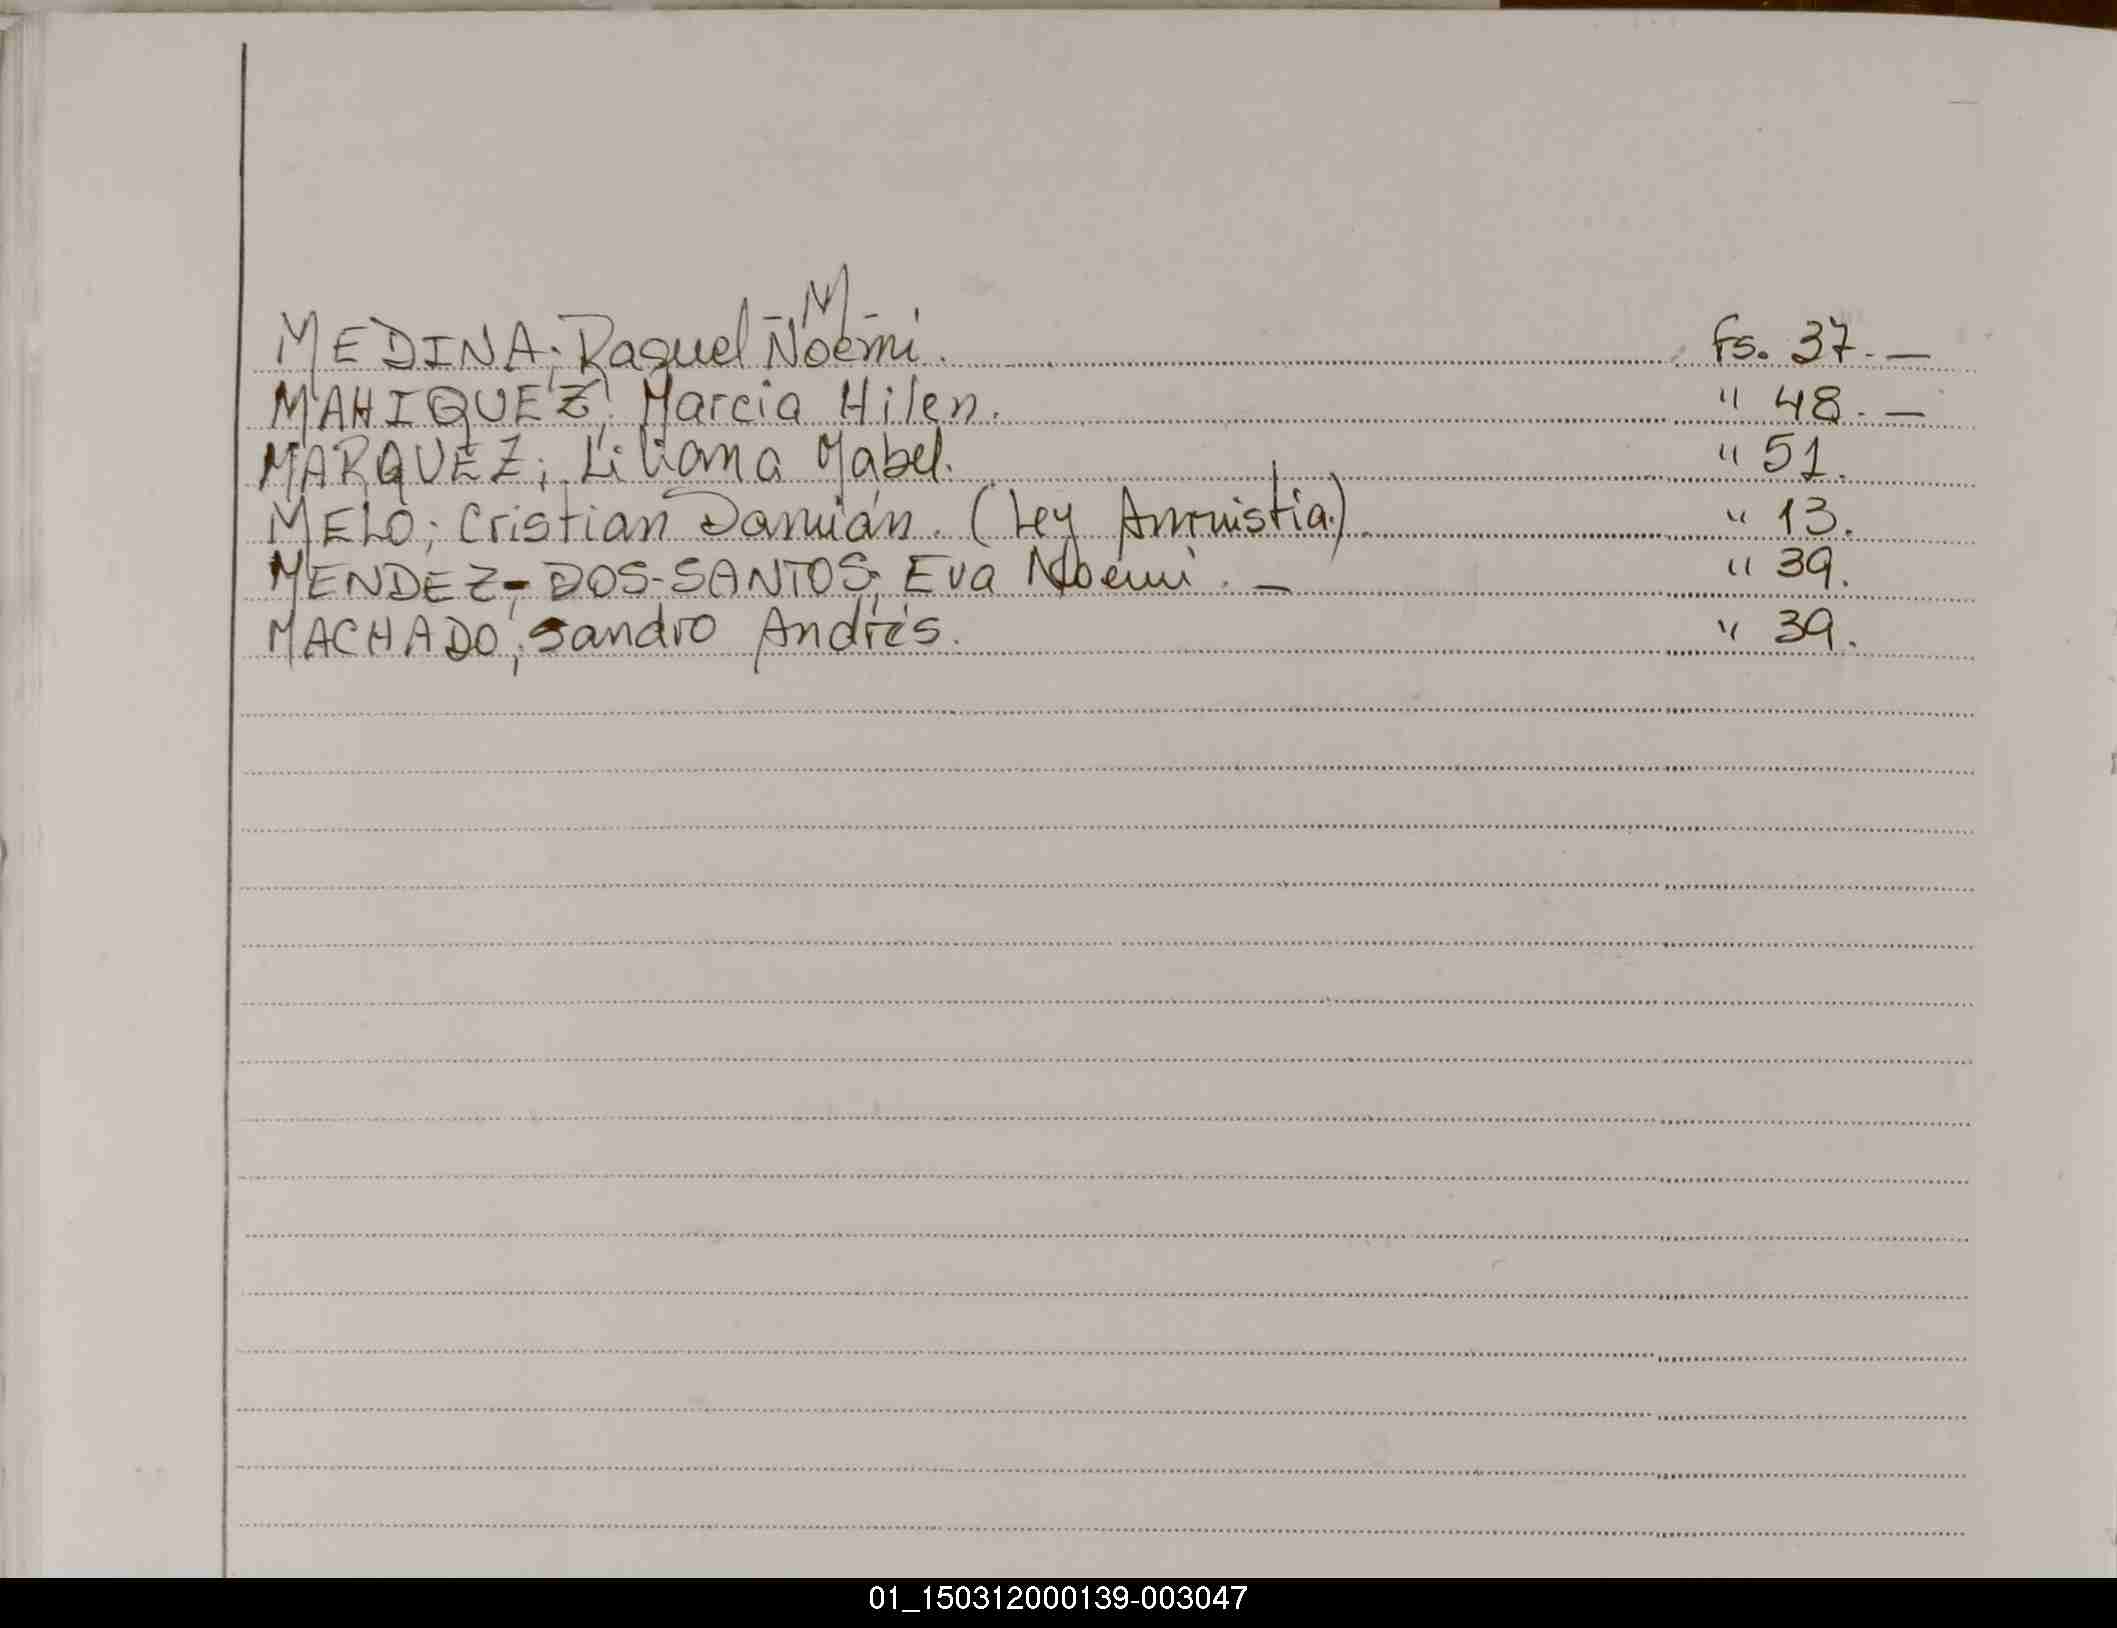 - M -
MEDINA; Raquel Noemi. Fs. 37. —
MAHIQUEZ; Marcia Hilen. " 48. —
MARQUEZ; Liliana Mabel. " 51.
MELO; Cristian Damián. (Ley Amnistia.) " 13.
MENDEZ- DOS-SANTOS; Eva Noemi. — " 39.
MACHADO; Sandro Andrés. " 39.
01_150312000139-003047